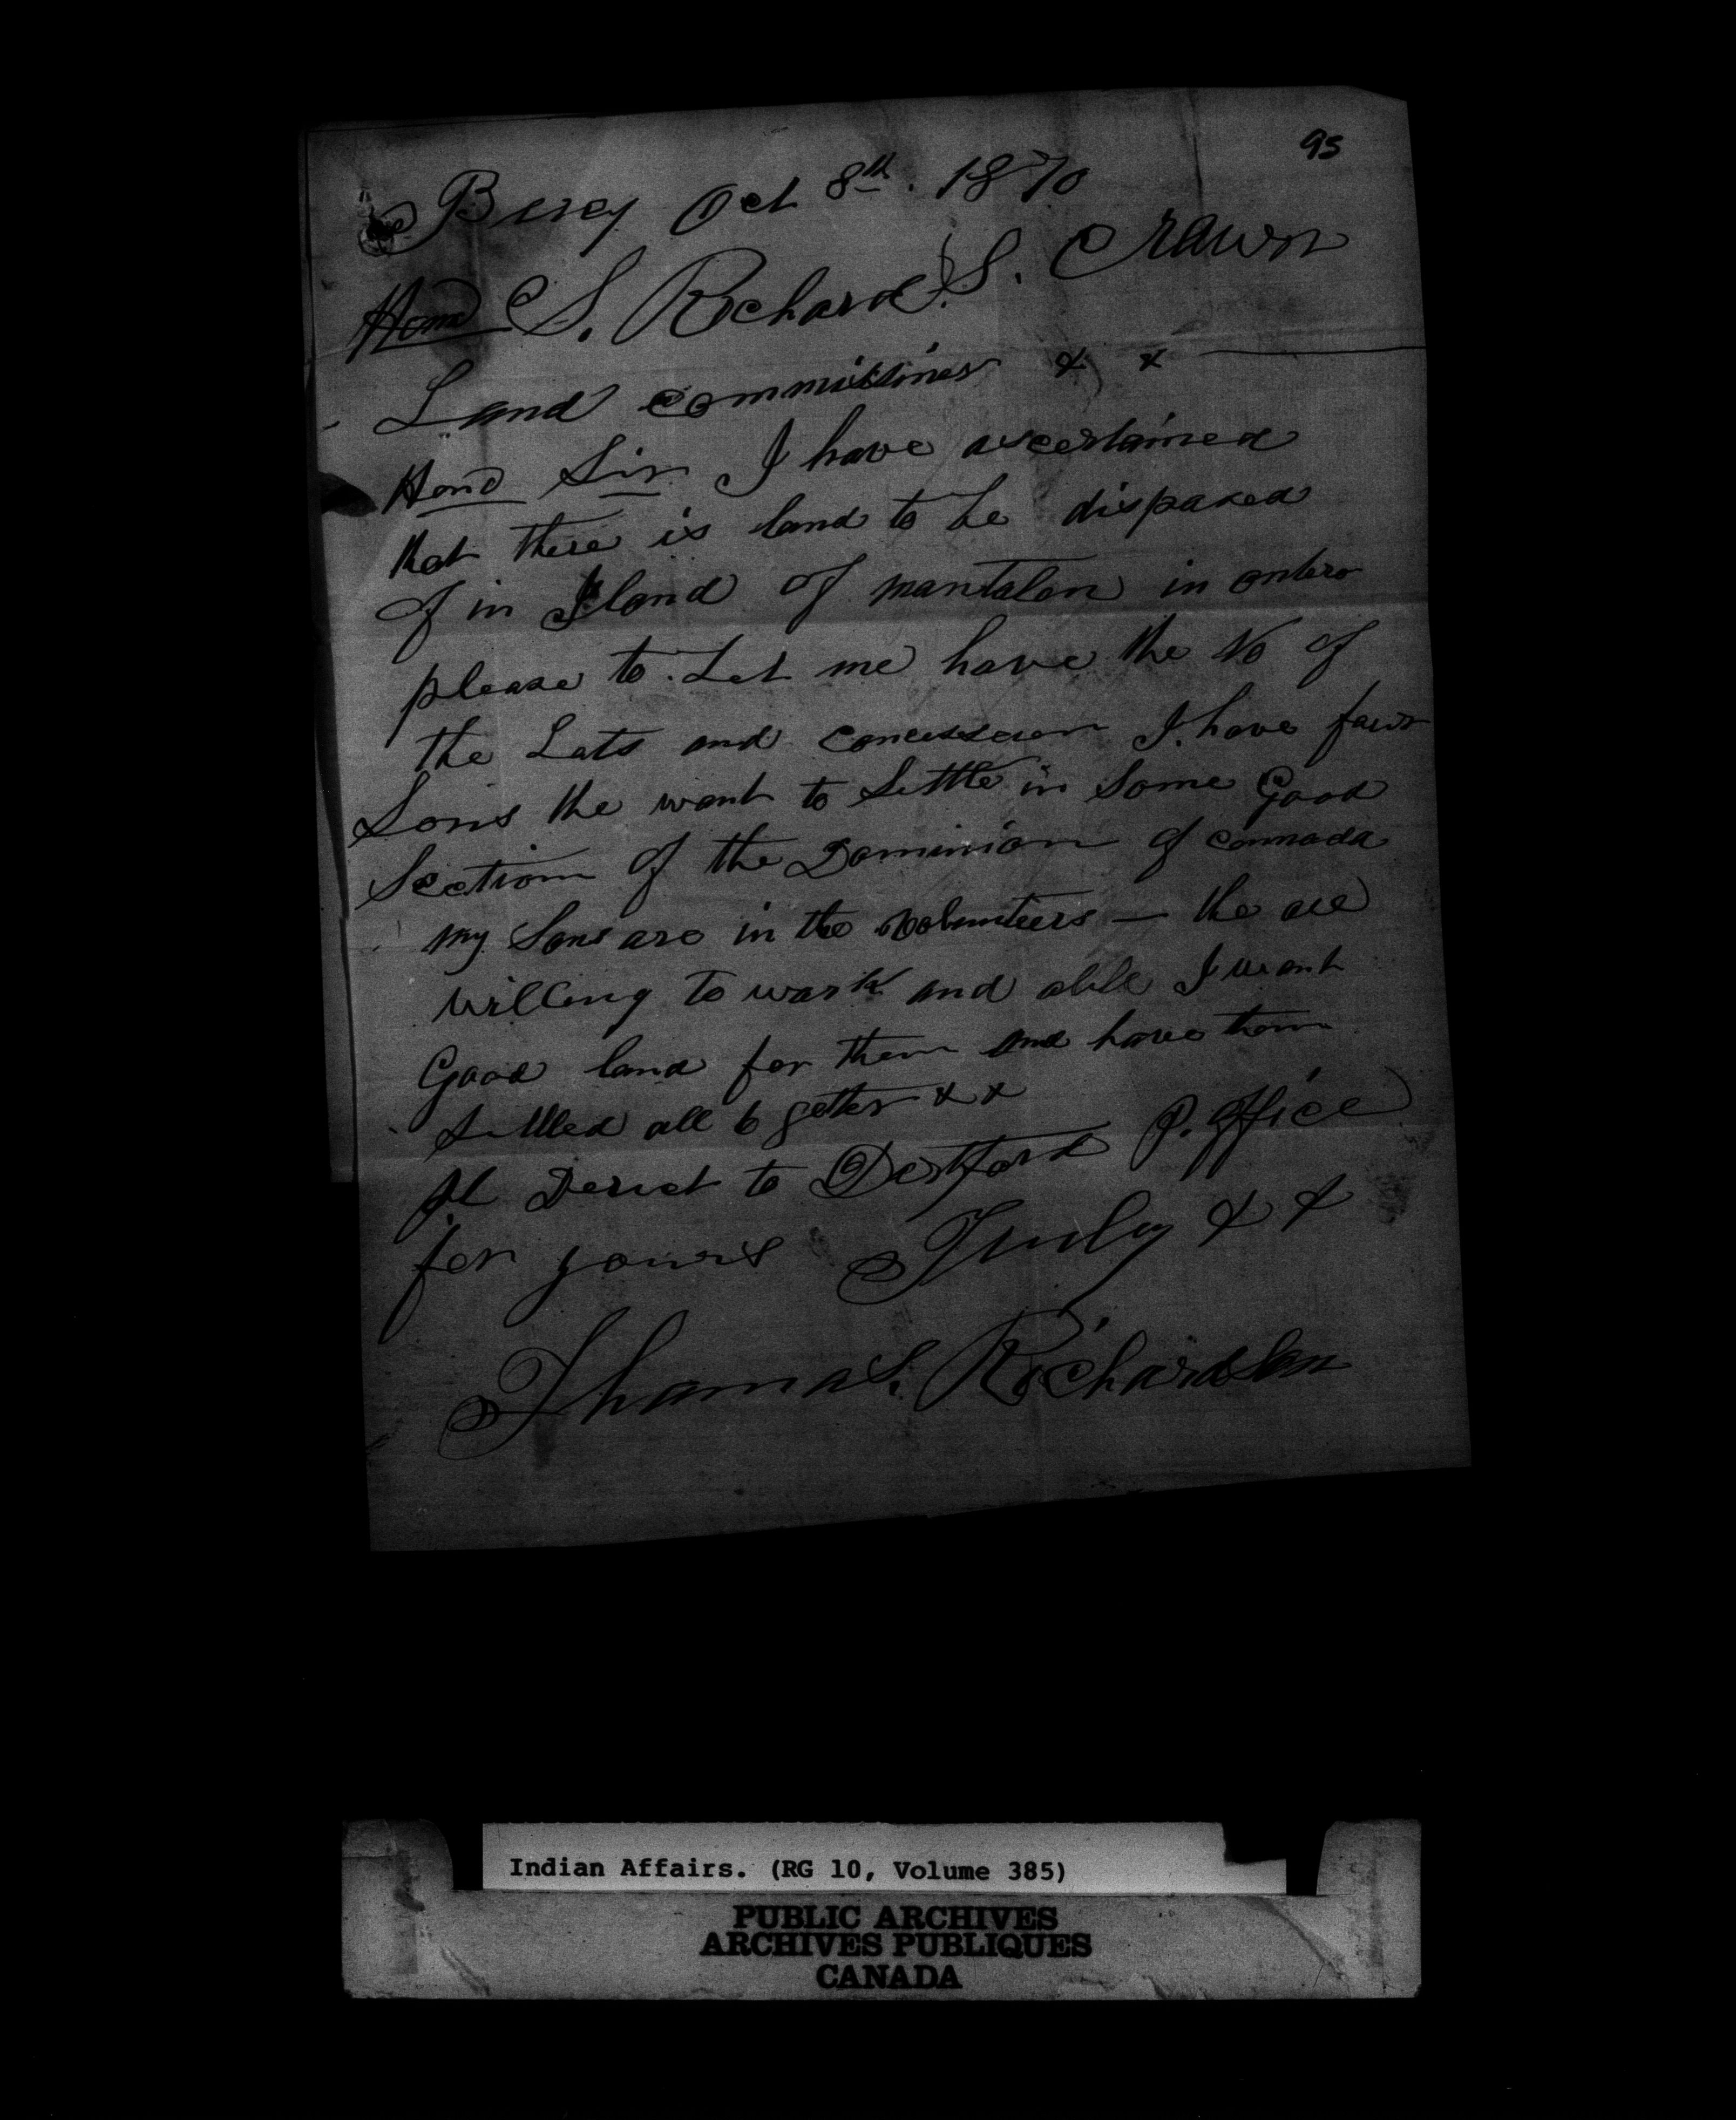 95
Bury Oct 8th. 1870
Hond S. Richard. S. Crawn
Land committiner & &
Hond Sir I have ascertained
that there is land to be dispased
of in Island of mantalen in ontero
please to Let me have the No of
the Lats and concesseion I have fawr
Sons the want to Settle in Some Good
Section of the Dominion of connada
my Sons are in the volunteers — the are
willing to wark and able I want
Good land for them and have them
Settled all to gether & &
pl Derict to P. office
for yours Truly & &
Thomas. Richardson
Indian Affairs. (RG 10, Volume 385)
PUBLIC ARCHIVES
ARCHIVES PUBLIQUES
CANADA